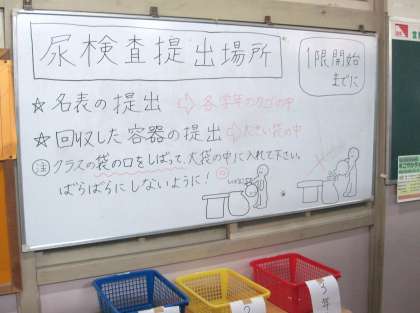 尿検査提出場所
1限開始
までに
☆名表の提出 ⇨各学年のカゴの中
☆回収した容器の提出⇨大きい袋の中
注 クラスの袋の口をしばって、大袋の中に入れて下さい。
ばらばらにしないように!
2
3年